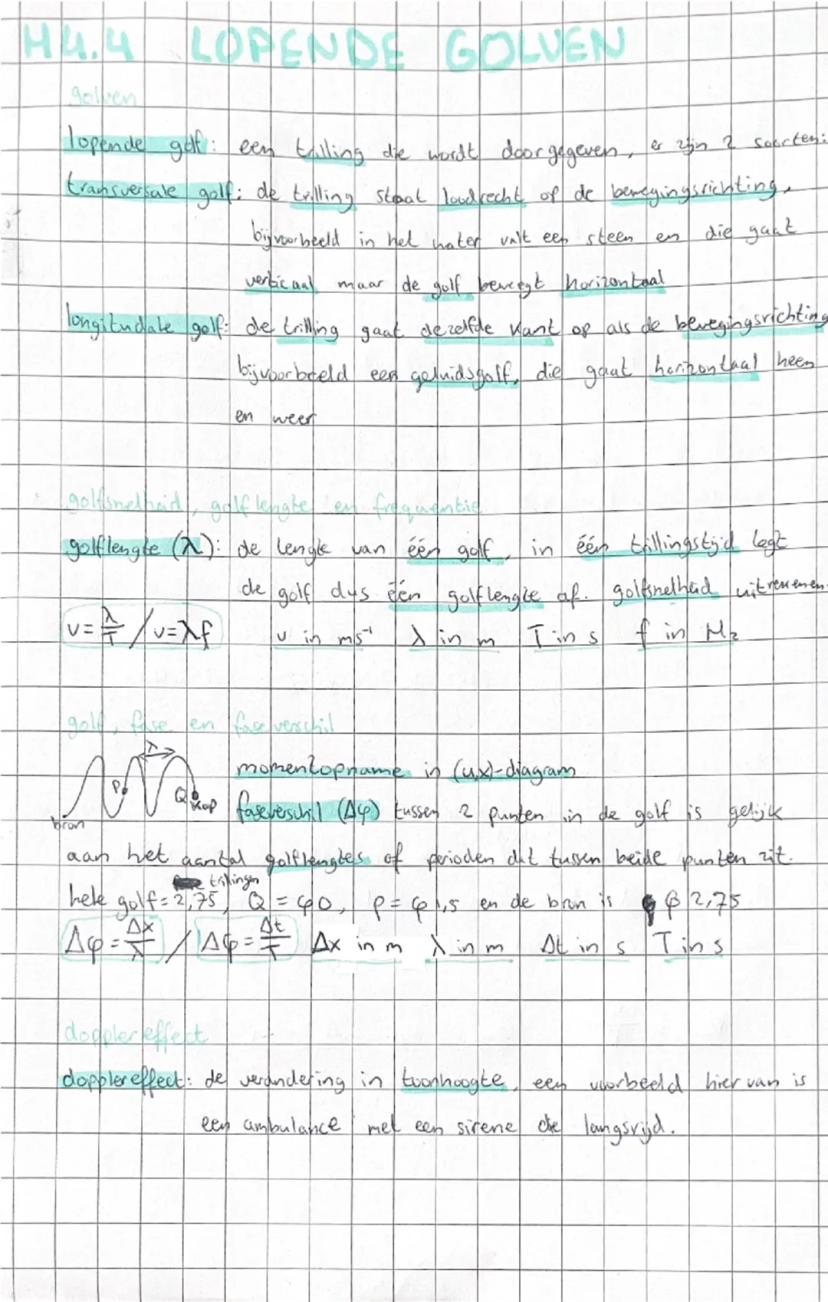 H4.4 LOPENDE GOLVEN
golven
lopende golf: een trilling die wordt doorgegeven, er zijn 2 soorten:
transversale golf: de trilling staat loodrecht op de bewegingsrichting,
bijvoorbeeld in het water valt een steen en die gaat
verticaal maar de golf beweegt horizontaal
longitudale golf: de trilling gaat dezelfde kant op als de bewegingsrichting
bijvoorbeeld een geluidsgolf, die gaat horizontaal heen
en weer
golfsnelheid, golflengte en frequentie
golflengte (λ): de lengte van één golf, in één trillingstijd legt
de golf dus één golflengte af. golfsnelheid uitrekenen:
v = λ/T / v = λf v in ms⁻¹ λ in m T in s f in Hz
golf, fase en faseverschil
λ
P Q kop
bron
momentopname in (u,x)-diagram
faseverschil (Δφ) tussen 2 punten in de golf is gelijk
aan het aantal golflengtes of perioden dat tussen beide punten zit.
hele golf = 2,75 trillingen, Q = φ0, P = φ1,5 en de bron is φ 2,75
Δφ = Δx/λ / Δφ = Δt/T Δx in m λ in m Δt in s T in s
dopplereffect
dopplereffect: de verandering in toonhoogte, een voorbeeld hier van is
een ambulance met een sirene die langsrijd.